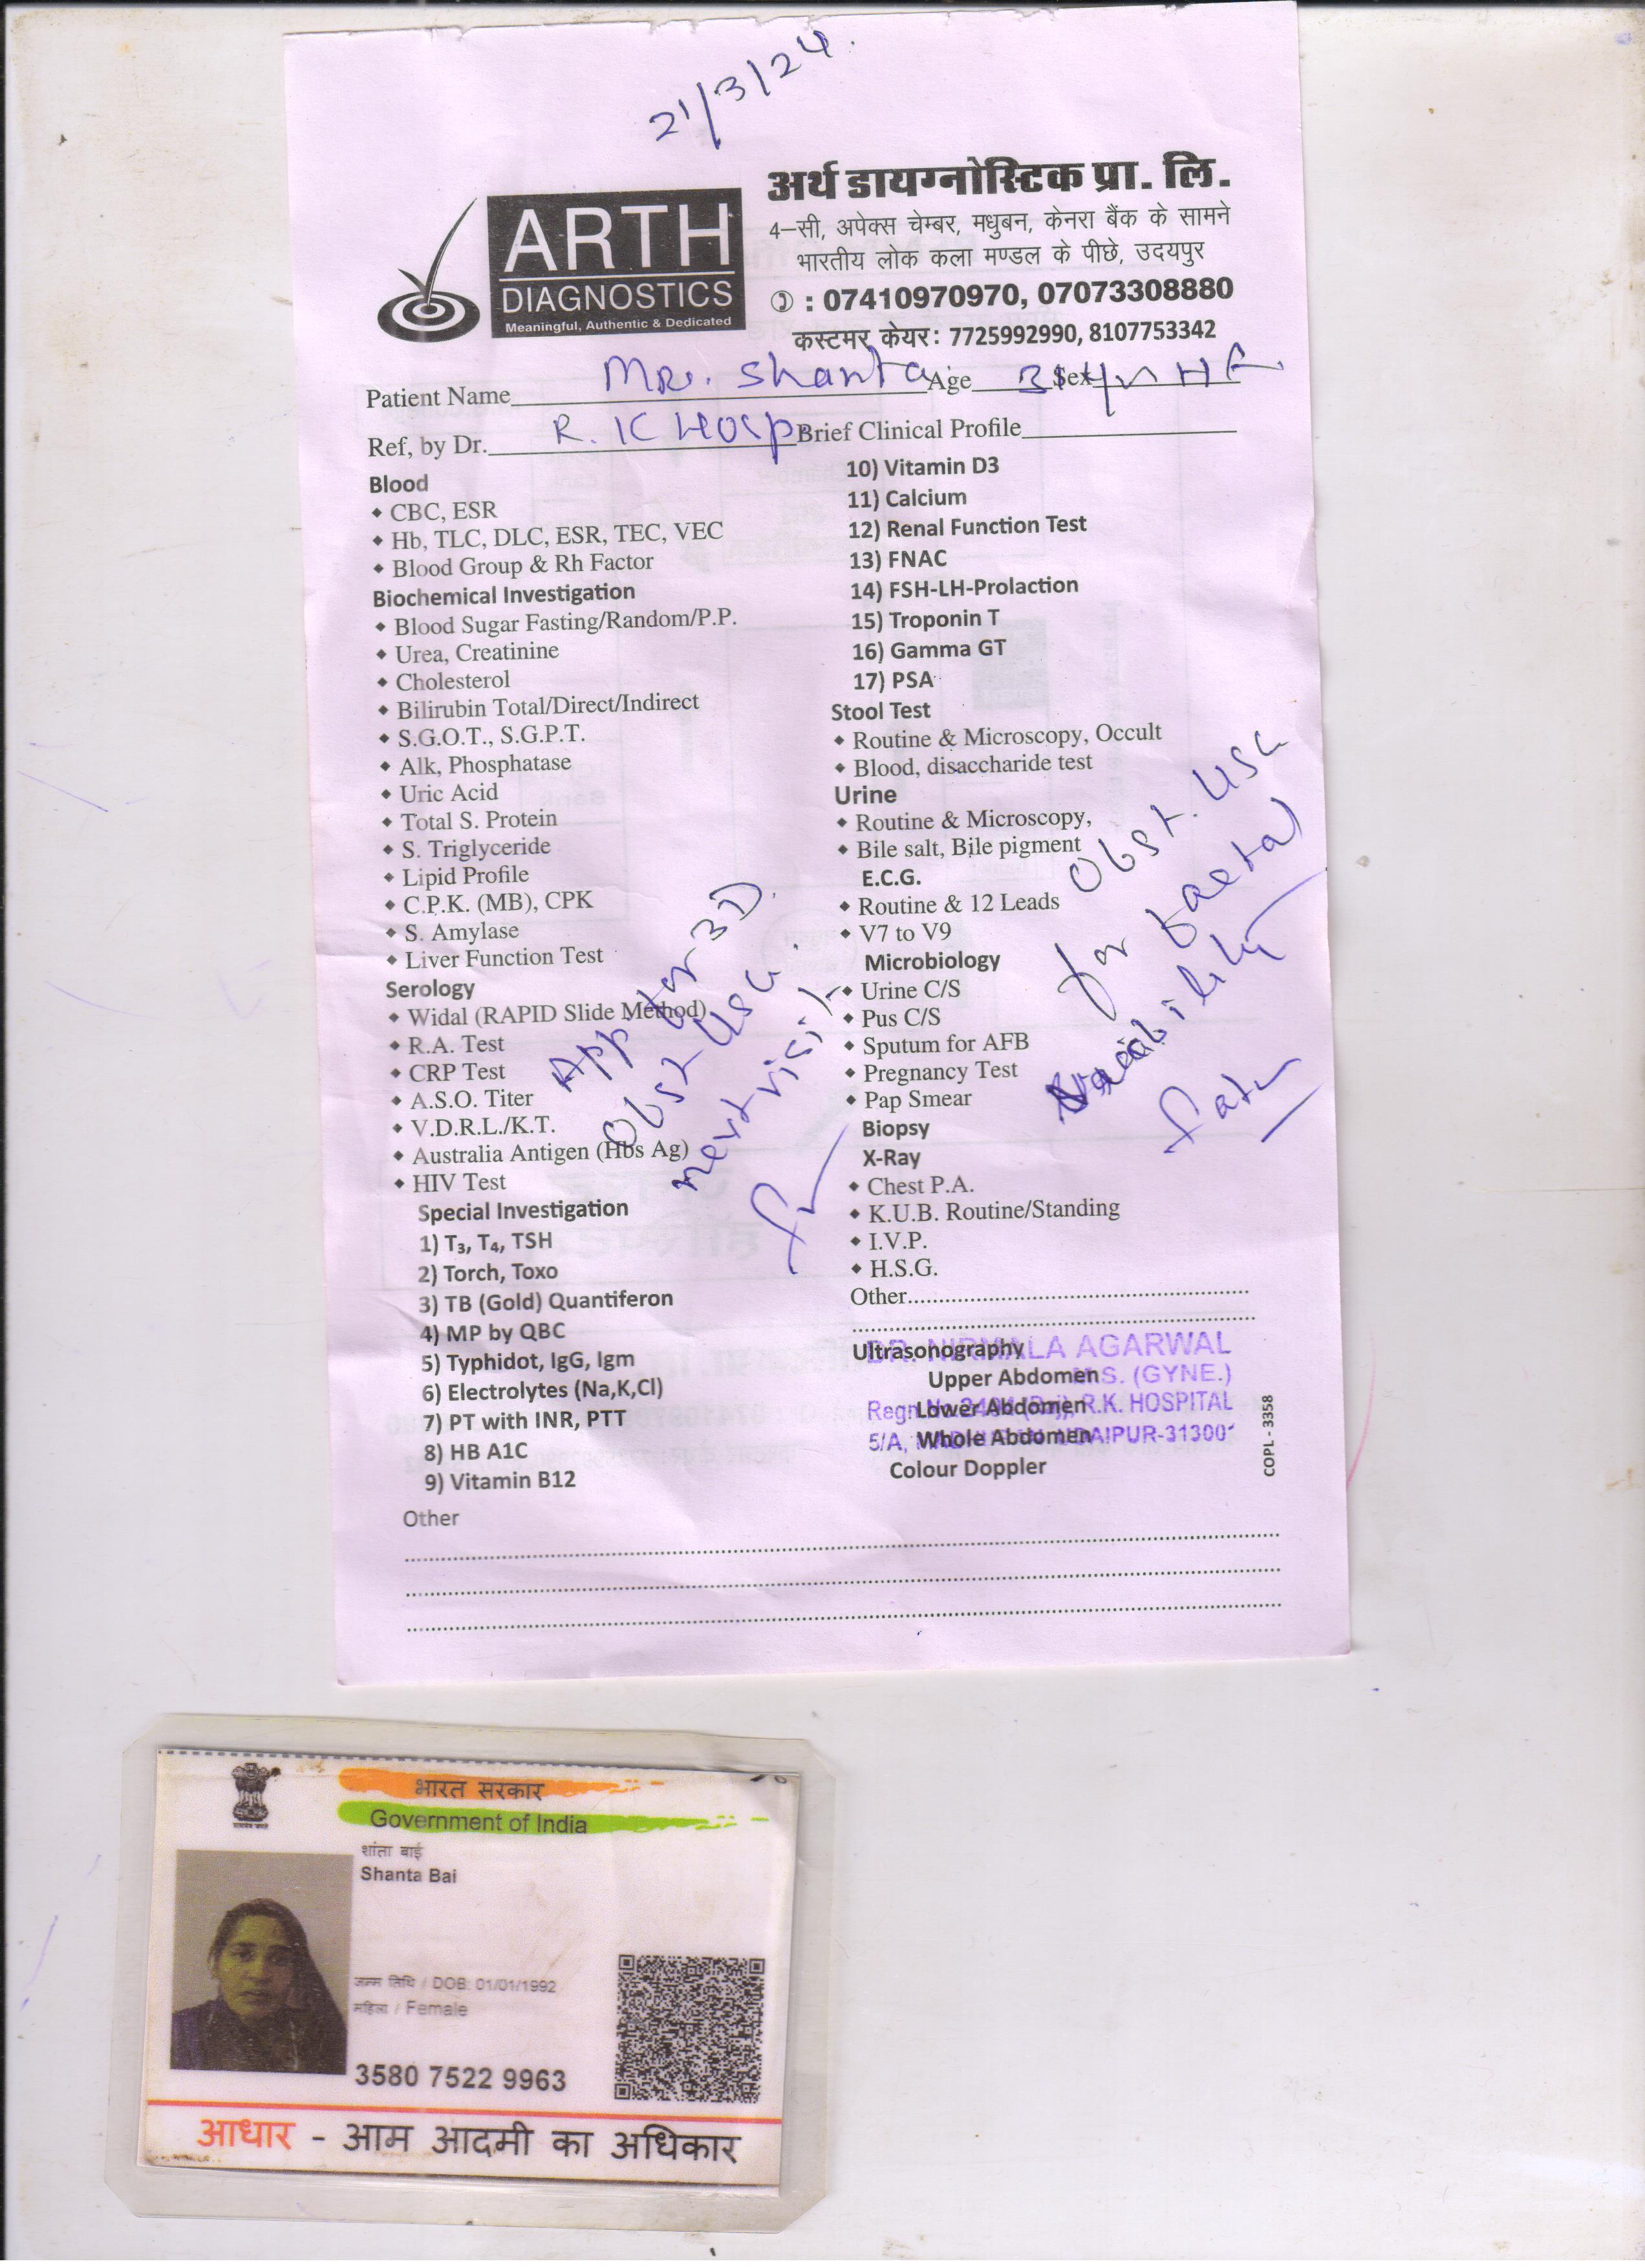 21/3/24.
ARTH
DIAGNOSTICS
Meaningful, Authentic & Dedicated
अर्थ डायग्नोस्टिक प्रा. लि.
4–सी, अपेक्स चेम्बर, मधुबन, केनरा बैंक के सामने
भारतीय लोक कला मण्डल के पीछे, उदयपुर
: 07410970970, 07073308880
कस्टमर केयर: 7725992990, 8107753342
Patient Name Mrs. Shanta Age Sex
Ref, by Dr. R. K Hosp. Brief Clinical Profile
Blood
CBC, ESR
Hb, TLC, DLC, ESR, TEC, VEC
Blood Group & Rh Factor
Biochemical Investigation
Blood Sugar Fasting/Random/P.P.
Urea, Creatinine
Cholesterol
Bilirubin Total/Direct/Indirect
S.G.O.T., S.G.P.T.
Alk, Phosphatase
Uric Acid
Total S. Protein
S. Triglyceride
Lipid Profile
C.P.K. (MB), CPK
S. Amylase
Liver Function Test
Serology
Widal (RAPID Slide Method)
R.A. Test
CRP Test
A.S.O. Titer
V.D.R.L./K.T.
Australia Antigen (Hbs Ag)
HIV Test
Special Investigation
1) T₃, T₄, TSH
2) Torch, Toxo
3) TB (Gold) Quantiferon
4) MP by QBC
5) Typhidot, IgG, Igm
6) Electrolytes (Na,K,Cl)
7) PT with INR, PTT
8) HB A1C
9) Vitamin B12
Other
App for 3D
Obst USG.
next visit
10) Vitamin D3
11) Calcium
12) Renal Function Test
13) FNAC
14) FSH-LH-Prolaction
15) Troponin T
16) Gamma GT
17) PSA
Stool Test
Routine & Microscopy, Occult
Blood, disaccharide test
Urine
Routine & Microscopy,
Bile salt, Bile pigment
E.C.G.
Routine & 12 Leads
V7 to V9
Microbiology
Urine C/S
Pus C/S
Sputum for AFB
Pregnancy Test
Pap Smear
Biopsy
X-Ray
Chest P.A.
K.U.B. Routine/Standing
I.V.P.
H.S.G.
Other
Obst. USG
for faetal
Ultrasonography
Upper Abdomen
Lower Abdomen
Whole Abdomen
Colour Doppler
DR. NIRMALA AGARWAL
M.S. (GYNE.)
R.K. HOSPITAL
UDAIPUR-313001
COPL - 3358
भारत सरकार
Government of India
शांता बाई
Shanta Bai
जन्म तिथि / DOB: 01/01/1992
महिला / Female
3580 7522 9963
आधार - आम आदमी का अधिकार